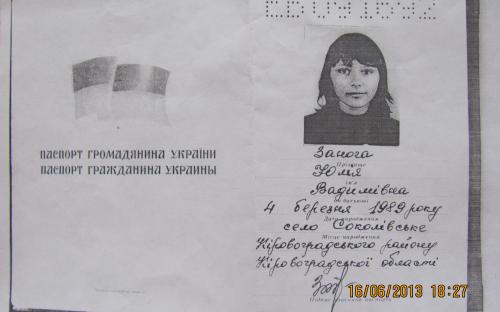 ПАСПОРТ ГРОМАДЯНИНА УКРАЇНИ
ПАСПОРТ ГРАЖДАНИНА УКРАИНЫ
Занога
Прізвище
Юлія
Ім'я
Вадимівна
По батькові
4 березня 1989 року
Дата народження
село Соколівське
Місце народження
Кіровоградського району
Кіровоградської області
Підпис власника паспорта
16/06/2013 18:27